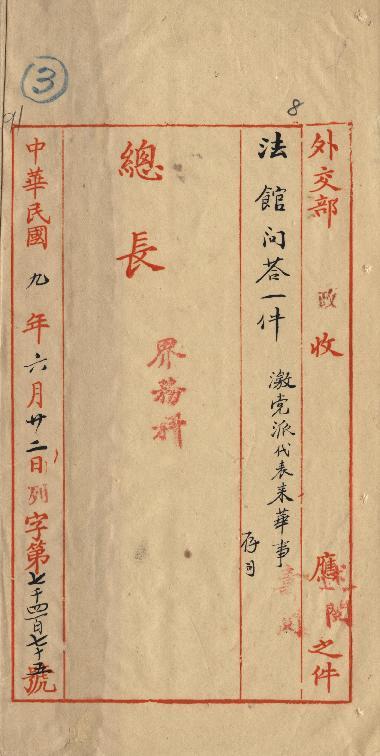 ③
8
外交部 政收 應 之件
法館问荅一件
激党派代表来華事
存司
總長
界務科
中華民國九年六月廿二日列字第七千四百七十號